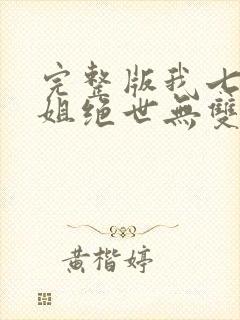 完整版我七
姐绝世无雙
黄楷婷